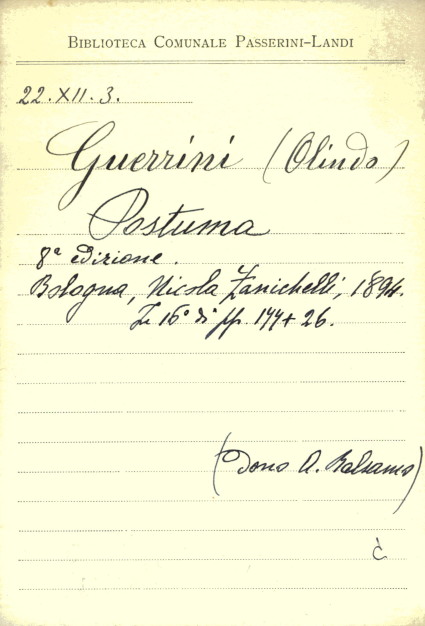 BIBLIOTECA COMUNALE PASSERINI-LANDI
22.XII.3.
Guerrini (Olindo)
Postuma
8ª edizione.
Bologna, Nicola Zanichelli, 1894.
In 16° di pp. 174+26.
(Dono A. Balsamo)
C